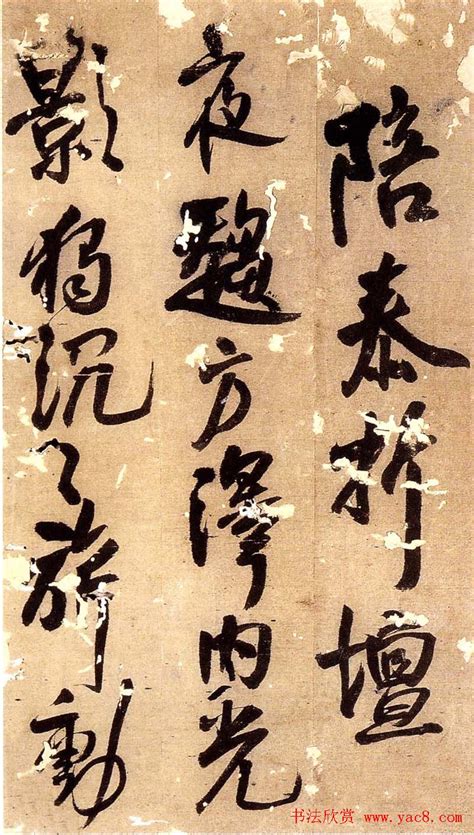 陪泰折壇
夜趨方澤内光
影獨沉々旂動
书法欣赏 www.yac8.com